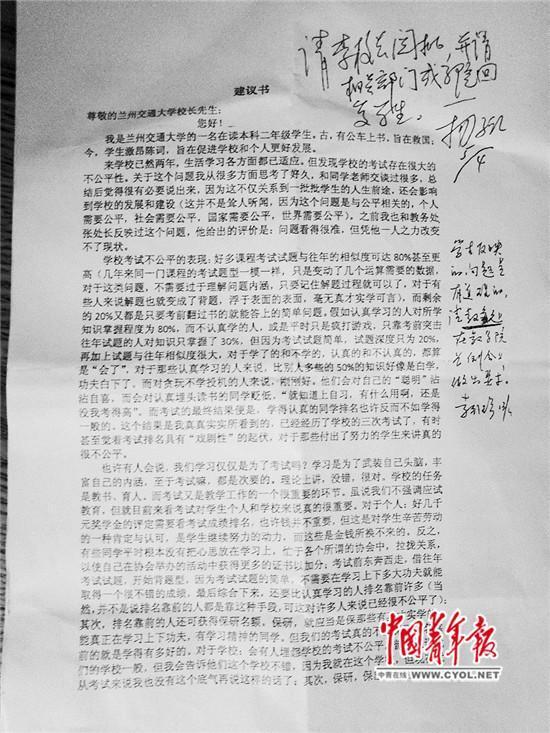 请李校长阅批，并请
相关部门或
学生。
5/4
建议书
尊敬的兰州交通大学校长先生：
您好！
我是兰州交通大学的一名在读本科二年级学生。古，有公车上书，旨在救国；
今，学生激昂陈词，旨在促进学校和个人更好发展。
来学校已然两年，生活学习各方面都已适应。但发现学校的考试存在很大的
不公平性。关于这个问题我从很多方面思考了好久，和同学老师交谈过很多，总
结后觉得很有必要说出来，因为这不仅关系到一批批学生的人生前途，还会影响
到学校的发展和建设（这并不是耸人听闻，因为这个问题是与公平相关的，个人
需要公平，社会需要公平，国家需要公平，世界需要公平）。之前我也和教务处
张处长反映过这个问题，他给出的评价是：问题看得很准，但凭他一人之力改变
不了现状。
学校考试不公平的表现：好多课程考试试题与往年的相似度可达 80%甚至更
高（几年来同一门课程的考试题型一模一样，只是变动了几个运算需要的数据，
对于这类问题，不需要过于理解问题内涵，只要记住解题过程就可以了，对于有
些人来说解题也就变成了背题，浮于表面的表面，毫无真才实学可言），而剩余
的 20%又都是只要考前翻过书的就能答上的简单问题。假如认真学习的人对所学
知识掌握程度为 80%，而不认真学的人，或是平时只是疯打游戏，只靠考前突击
往年试题的人对知识只掌握了 30%，但因为考试试题简单，试题深度只为 20%，
再加上试题与往年相似度很大，对于学了的和不学的，认真的和不认真的，都算
是“会了”，对于那些认真学习的人来说，比别人多些的 50%的知识好像是白学，
功夫白下了。而对贪玩不学投机的人来说，刚刚好。他们会对自己的“聪明”沾
沾自喜，而会对认真埋头读书的同学贬低，“就知道上自习，有什么用啊，还是
没我考得高”。而考试的最终结果便是，学得认真的同学排名也许反而不如学得
一般的。这个结果是我真真实实所看到的，已经经历了学校的三次考试了，有时
甚至觉着考试排名具有“戏剧性”的起伏，对于那些付出了努力的学生来讲真的
很不公平。
也许有人会说，我们学习仅仅是为了考试吗？学习是为了武装自己头脑，丰
富自己的内涵，至于考试嘛，都是次要的。理论上讲，没错，很对。学校的任务
是教书、育人。而考试又是教学工作的一个很重要的环节。虽说我们不强调应试
教育，但就目前来看考试对学生个人和学校来说真的很重要。对于个人：好几千
元奖学金的评定需要看考试成绩排名，也许钱并不重要，但这是对学生辛苦劳动
的一种肯定与认可，是学生继续努力的动力，而这些是金钱所换不来的。反之，
有些同学平时根本没有把心思放在学习上，忙于各个所谓的协会中，拉拢关系，
以使自己在协会举办的活动中获得更多的证书以加分；考试前东奔西走，借往年
考试试题，开始背题型，因为考试试题的简单，不需要在学习上下多大功夫就能
取得一个很不错的成绩，最后综合下来，还要比认真学习的人排名靠前许多（当
然，并不是说排名靠前的人都是靠这种手段，可这对许多人来说已经很不公平了）；
其次，排名靠前的人还可获得保研名额。保研，就应当是保那些有
能真正在学习上下功夫，有学习精神的同学。但我们的考试真的不
前的就是学得有多好的。对于学校：会有人埋怨学校的考试不公平，
们的学校一般，但我会告诉他们这个学校不错，因为我就在这个学
从考试来说我也没有这个底气再说这样的话了；其次，保研，保
学生反映
的问题是
有道理的，
请教务处
在
做出要求。
中国青年报
中青在线 WWW.CYOL.NET